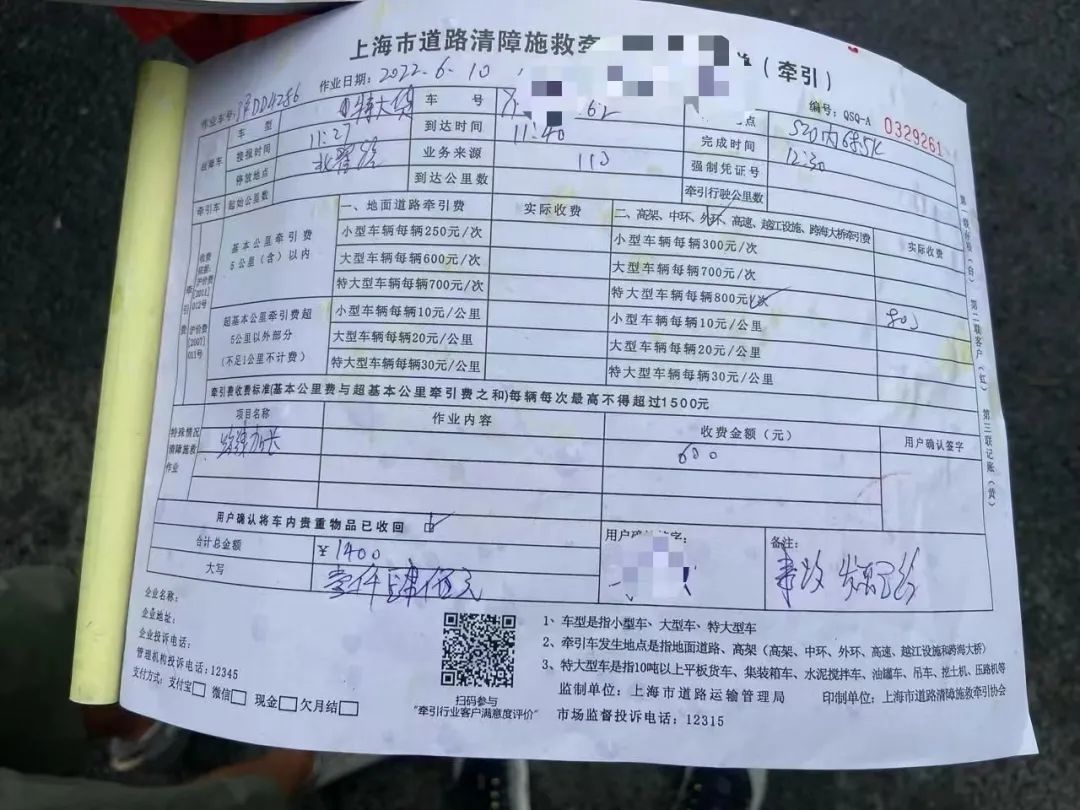 上海市道路清障施救牵
（牵引）
作业日期：2022.6.10
编号：QSQ-A 0329261
作业车号：沪DD4286
故障车
车型 特大货 车号 62 点 S20内685K
接报时间 11:27 到达时间 11:40 完成时间 12:30
停放地点 北翟路 业务来源 110 强制凭证号
牵引车 起始公里数 到达公里数 牵引行驶公里数
收费依据：沪价费[2011]012号 沪价费[2007]011号
牵引费
一、地面道路牵引费 实际收费 二、高架、中环、外环、高速、越江设施、跨海大桥牵引费 实际收费
基本公里牵引费5公里（含）以内
小型车辆每辆250元/次 小型车辆每辆300元/次
大型车辆每辆600元/次 大型车辆每辆700元/次
特大型车辆每辆700元/次 特大型车辆每辆800元/次 800
超基本公里牵引费超5公里以外部分（不足1公里不计费）
小型车辆每辆10元/公里 小型车辆每辆10元/公里
大型车辆每辆20元/公里 大型车辆每辆20元/公里
特大型车辆每辆30元/公里 特大型车辆每辆30元/公里
牵引费收费标准(基本公里费与超基本公里牵引费之和)每辆每次最高不得超过1500元
特殊情况清障施救作业
项目名称 作业内容 收费金额（元） 用户确认签字
600
用户确认将车内贵重物品已收回
合计总金额 ¥1400
大写
用户确 字：
备注：
事故
企业名称：
企业地址：
企业投诉电话：
管理机构投诉电话：12345
支付方式：支付宝 微信 现金 欠月结
扫码参与
“牵引行业客户满意度评价”
1、车型是指小型车、大型车、特大型车
2、牵引车发生地点是指地面道路、高架（高架、中环、外环、高速、越江设施和跨海大桥）
3、特大型车是指10吨以上平板货车、集装箱车、水泥搅拌车、油罐车、吊车、挖土机、压路机等
监制单位：上海市道路运输管理局 印制单位：上海市道路清障施救牵引协会
市场监督投诉电话：12315
第二联客户（红） 第三联记账（黄）